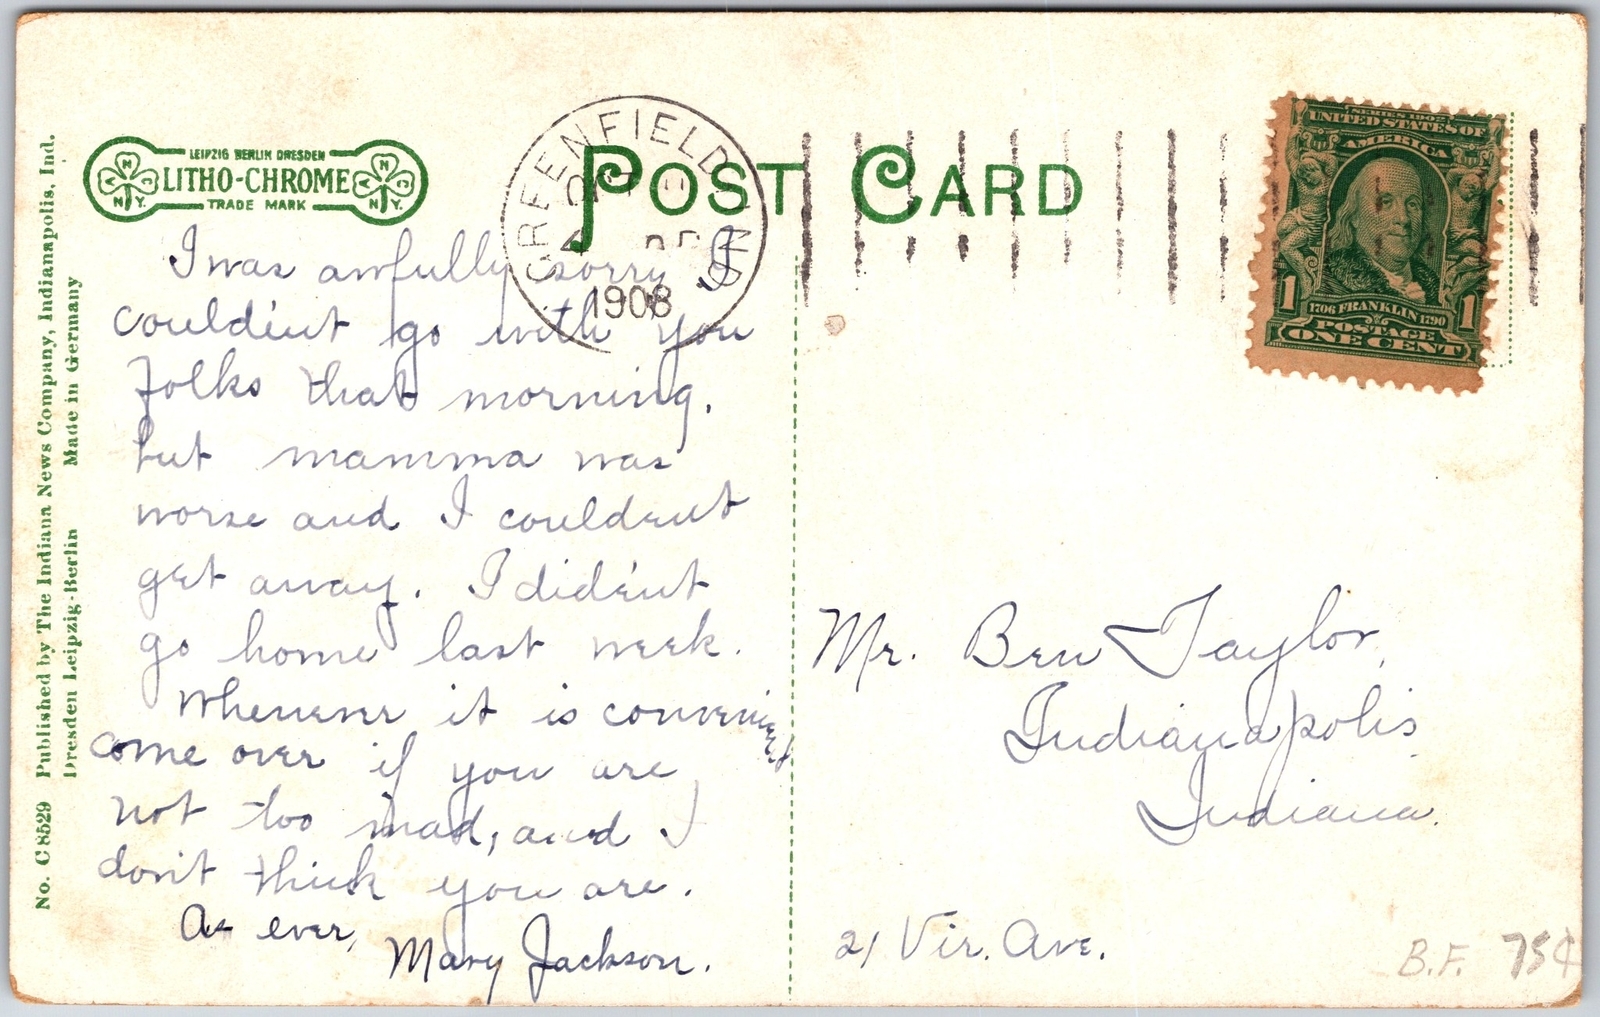 No. C 8529 Published by The Indiana News Company, Indianapolis, Ind.
Dresden Leipzig-Berlin Made in Germany
LEIPZIG BERLIN DRESDEN
LITHO-CHROME
TRADE MARK
N.Y.
N.Y.
POST CARD
GREENFIELD IND
1908
SERIES 1902
UNITED STATES OF
AMERICA
1706 FRANKLIN 1790
1 POSTAGE 1
ONE CENT
I was awfully sorry I
couldn't go with you
folks that morning.
but mamma was
worse and I couldn't
get away. I didn't
go home last week.
Whenever it is convenient
come over if you are
not too mad, and I
don't think you are.
As ever,
Mary Jackson.
Mr. Ben Taylor,
Indianapolis,
Indiana.
21 Vir. Ave.
B.F. 75¢